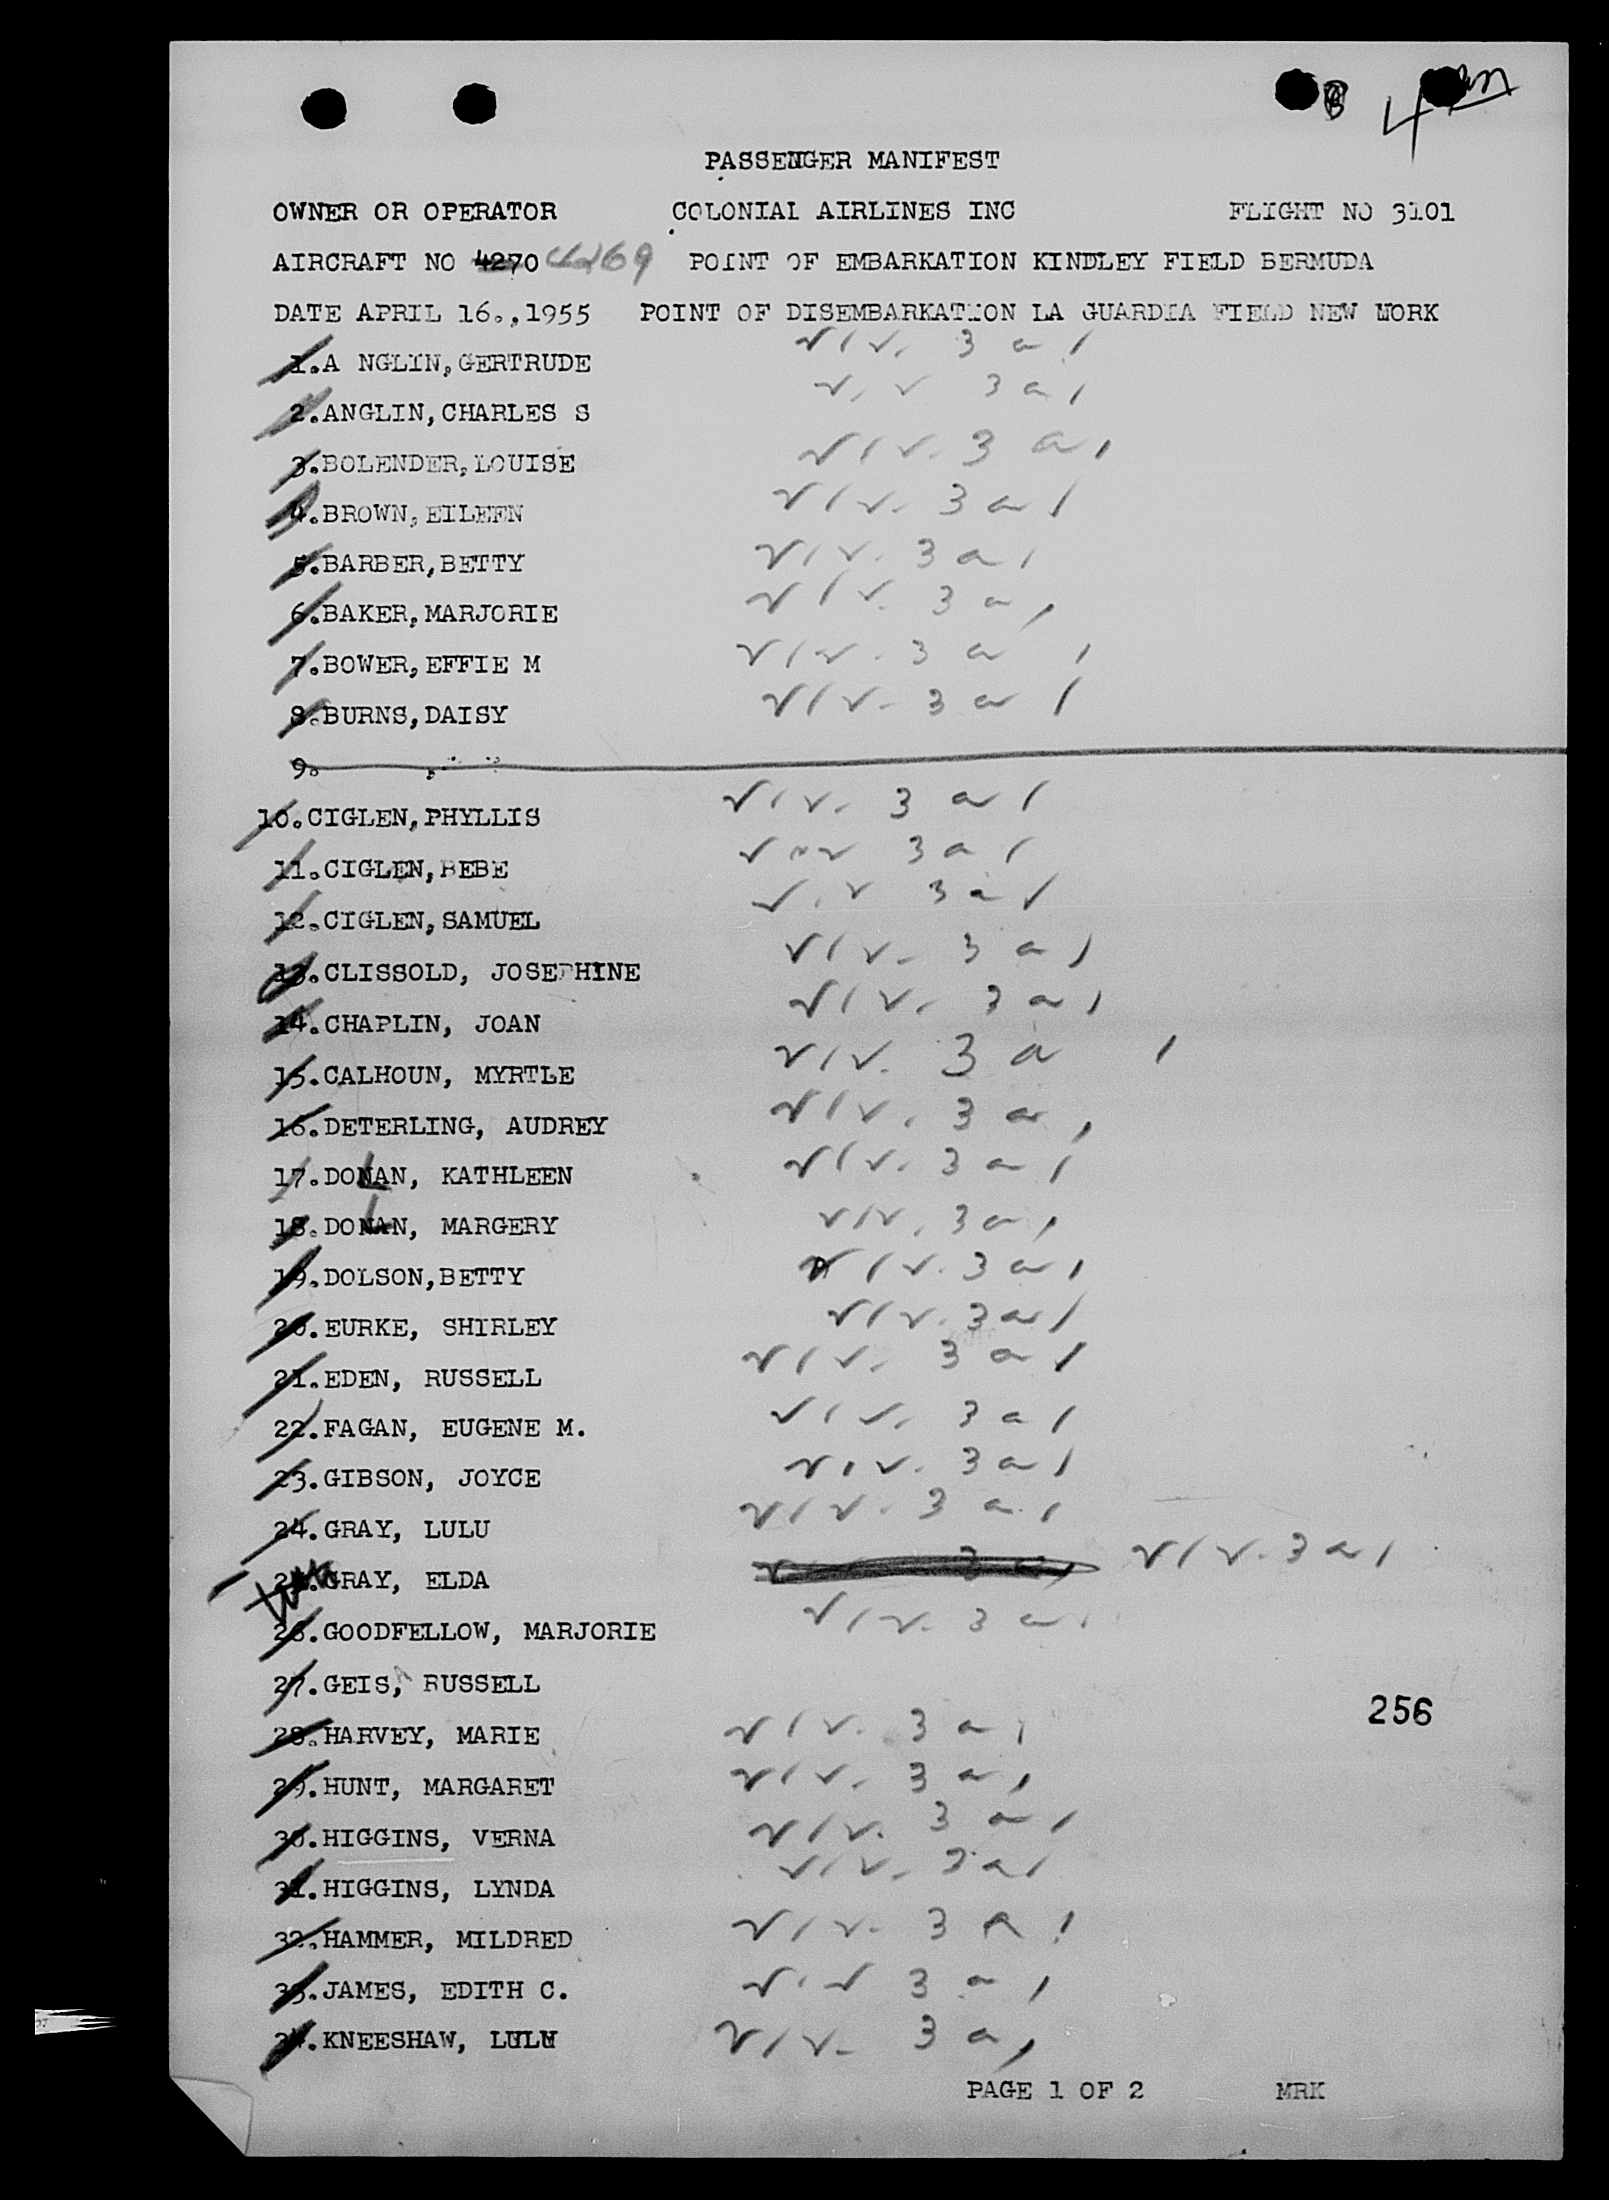 4
PASSENGER MANIFEST
OWNER OR OPERATOR COLONIAL AIRLINES INC FLIGHT NO 3101
AIRCRAFT NO 4270 4269 POINT OF EMBARKATION KINDLEY FIELD BERMUDA
DATE APRIL 16.,1955 POINT OF DISEMBARKATION LA GUARDIA FIELD NEW WORK
1.A NGLIN,GERTRUDE 3 a 1
2.ANGLIN,CHARLES S 3 a 1
3.BOLENDER,LOUISE 3 a 1
4.BROWN,EILEEN 3 a 1
5.BARBER,BETTY 3 a 1
6.BAKER,MARJORIE 3 a 1
7.BOWER,EFFIE M 3 a 1
8.BURNS,DAISY 3 a 1
9.
10.CIGLEN,PHYLLIS 3 a 1
11.CIGLEN,BEBE 3 a 1
12.CIGLEN,SAMUEL 3 a 1
13.CLISSOLD, JOSEPHINE 3 a 1
14.CHAPLIN, JOAN 3 a 1
15.CALHOUN, MYRTLE 3 a 1
16.DETERLING, AUDREY 3 a 1
17.DONAN, KATHLEEN 3 a 1
18.DONAN, MARGERY 3 a 1
19.DOLSON,BETTY 3 a 1
20.EURKE, SHIRLEY 3 a 1
21.EDEN, RUSSELL 3 a 1
22.FAGAN, EUGENE M. 3 a 1
23.GIBSON, JOYCE 3 a 1
24.GRAY, LULU 3 a 1
25.GRAY, ELDA 3 a 1 3 a 1
26.GOODFELLOW, MARJORIE 3 a 1
27.GEIS, RUSSELL
256
28.HARVEY, MARIE 3 a 1
29.HUNT, MARGARET 3 a 1
30.HIGGINS, VERNA 3 a 1
31.HIGGINS, LYNDA 3 a 1
32.HAMMER, MILDRED 3 a 1
33.JAMES, EDITH C. 3 a 1
34.KNEESHAW, LULU 3 a 1
PAGE 1 OF 2 MRK